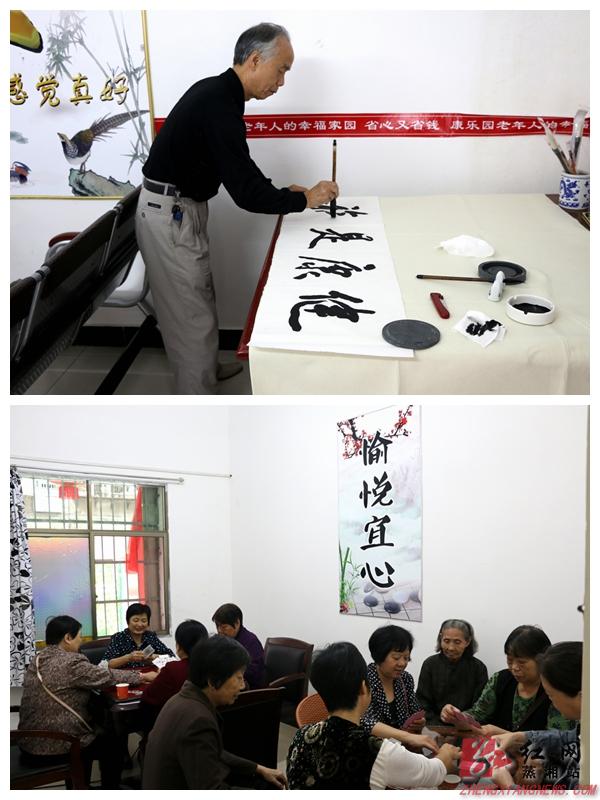 感觉真好
老年人的幸福家园 省心又省钱 康乐园老年人的幸
健康是
愉悦宜心
红网
蒸湘站
ZHENGXIANGNEWS.COM